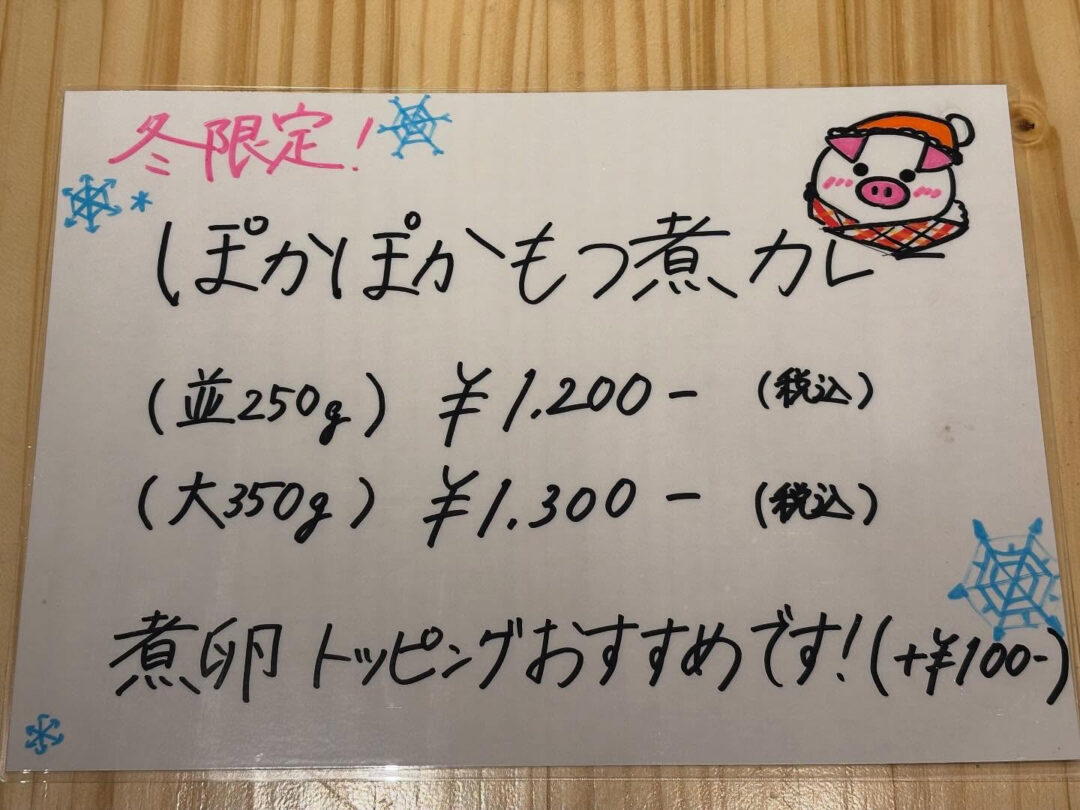 冬限定!
ぽかぽかもつ煮カレ
(並250g) ¥1.200- (税込)
(大350g) ¥1.300- (税込)
煮卵トッピングおすすめです!(+¥100-)